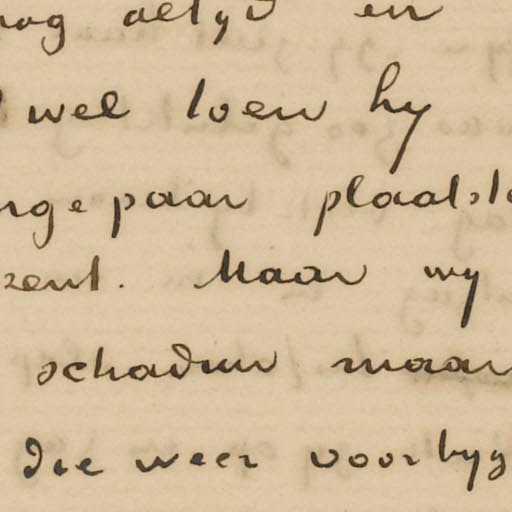 nog altyd en
wel toen hy
ngepaar plaatste
zent. Maar wy
schaduw maar
die weer voorbyg